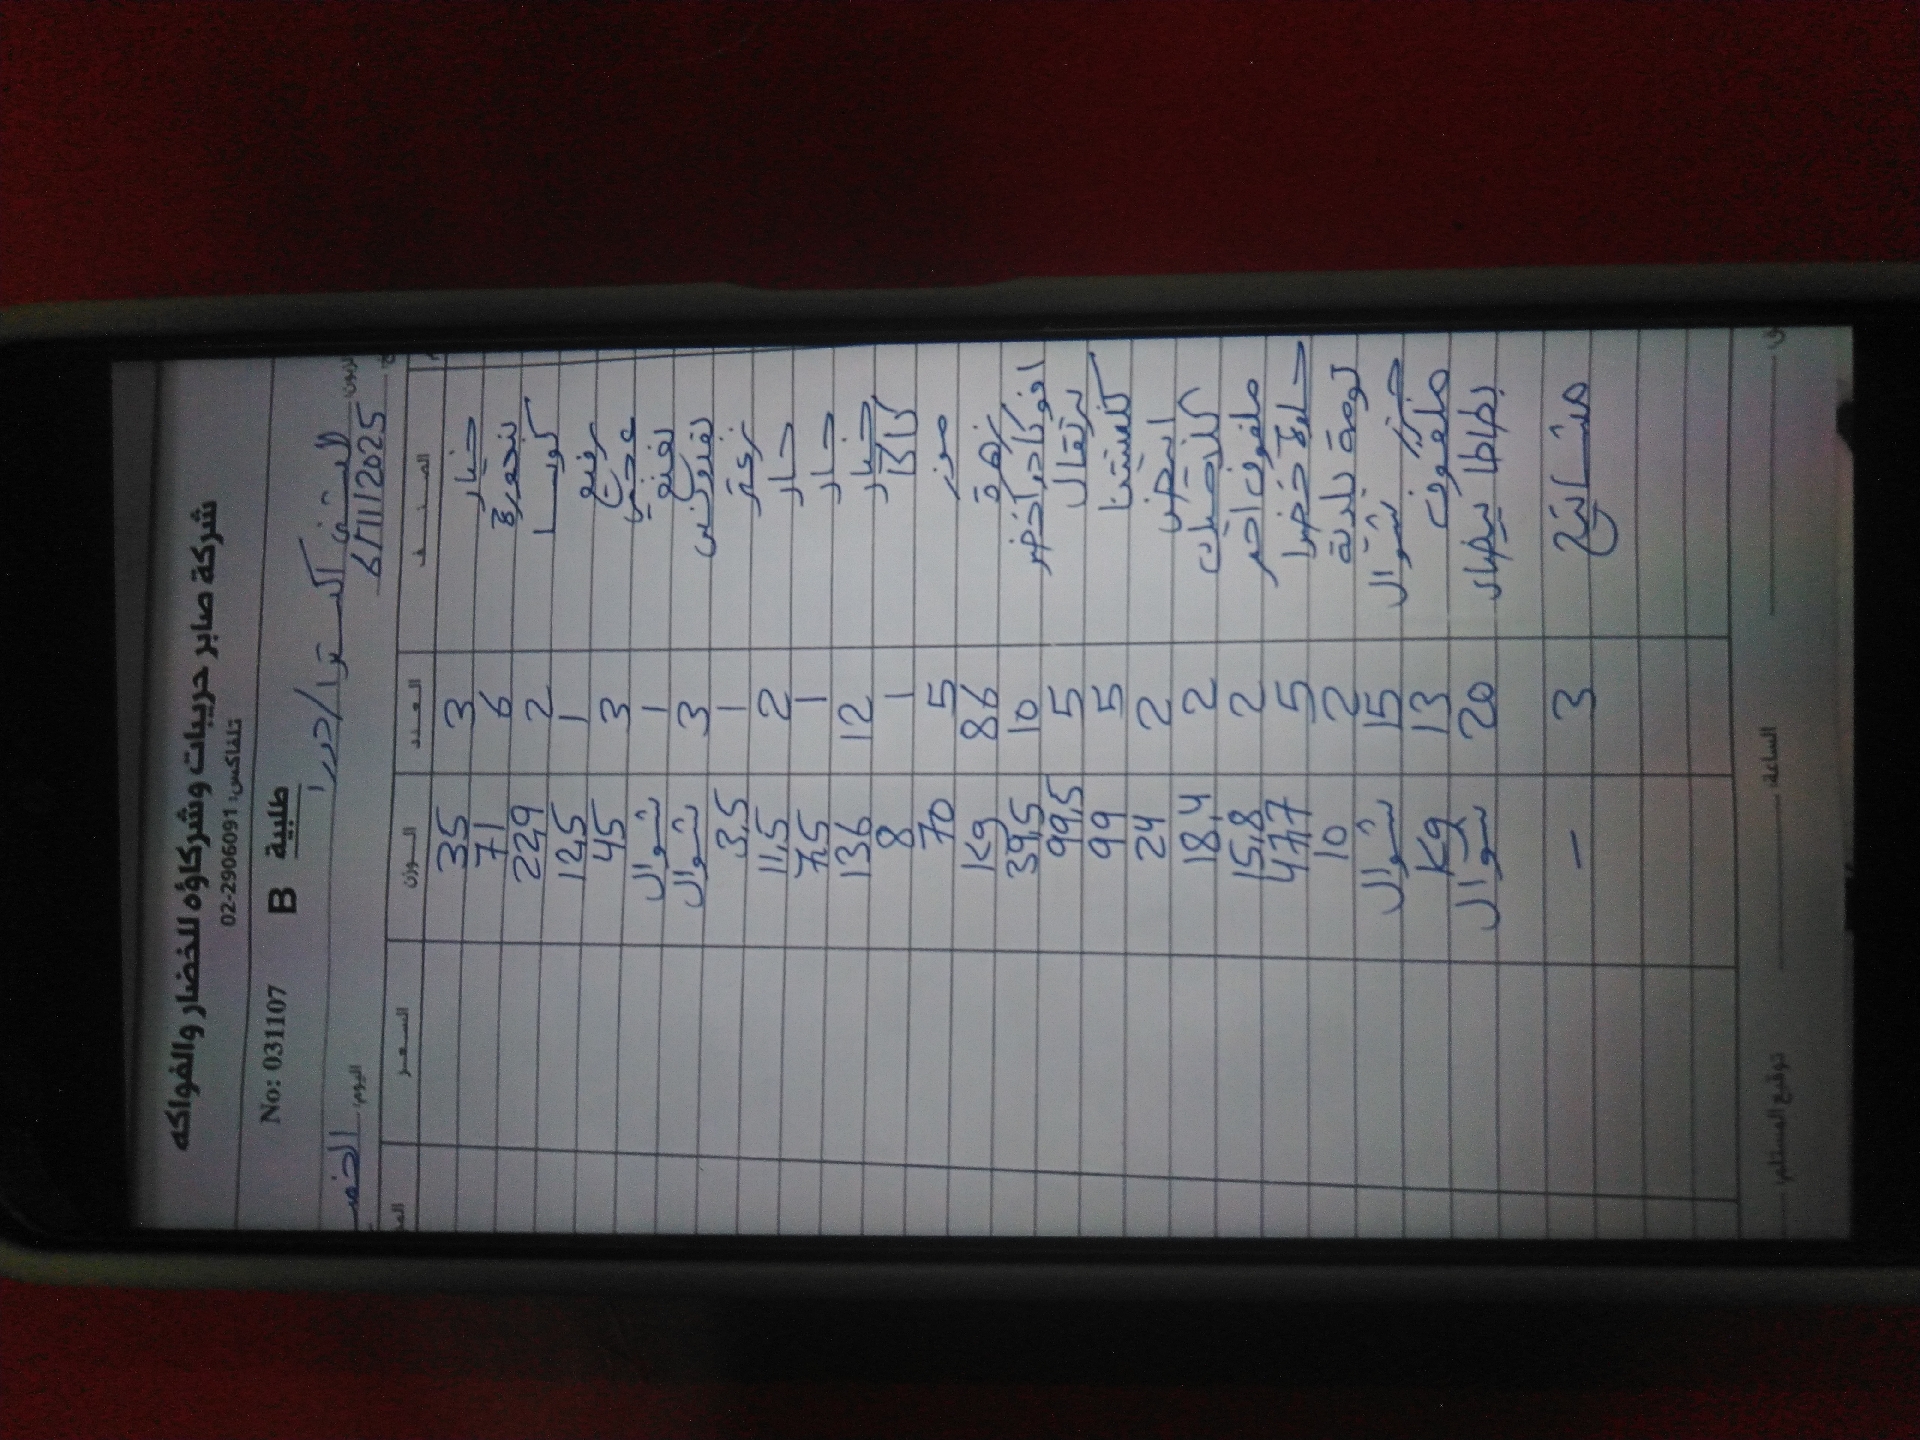 شركة صابر حربيات وشركاؤه للخضار والفواكه
تلفاكس: 02-2906091
No: 031107 B طلبية
اليوم:
6/11/2025
الصنف العدد الوزن السعر
خيار 3 35
بندورة 6 71
كوسا 2 22,9
1 12,5
3 45
1 شوال
3 شوال
1 3,5
2 11,5
حار 1 7,5
خيار 12 136
كاكا 1 8
موز 5 70
زهرة 86 Kg
افوكادو اخضر 10 39,5
برتقال 5 99,5
كلمنتينا 5 99
ابيض 2 24
2 18,4
ملفوف احمر 2 15,8
حلوة خضرا 5 47,7
بلدية 2 10
جزر شوال 15 شوال
ملفوف 13 Kg
بطاطا بيضاء 20 شوال
3 –
الساعة
توقيع المستلم